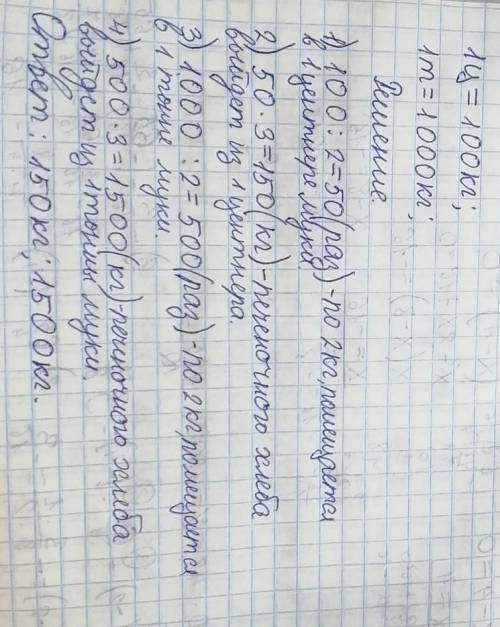 1ц = 100кг;
1т = 1000кг;
Решение.
1) 100 : 2 = 50 (раз) - по 2кг, помещается
в 1 центнере муки.
2) 50 · 3 = 150 (кг) - печеночного хлеба
выйдет из 1 центнера.
3) 1000 : 2 = 500 (раз) - по 2кг, помещается
в 1 тонне муки.
4) 500 · 3 = 1500 (кг) - печиночного хлеба
выйдет из 1 тонны муки.
Ответ: 150кг; 1500кг.